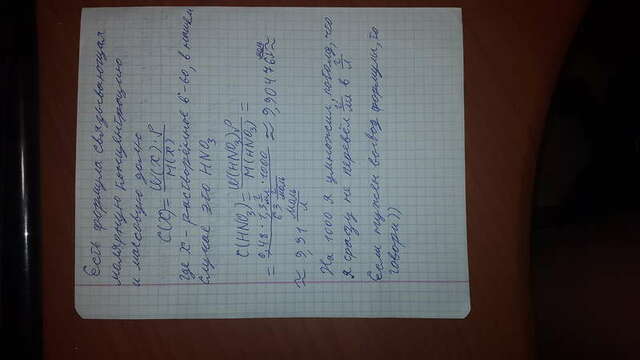 Есть формула связывающая
молярную концентрацию
и массовую долю
C(X) = W(X)·ρ / M(X)
Где X - растворённое в-во, в нашем
случае это HNO3
C(HNO3) = W(HNO3)·ρ / M(HNO3) =
= 0,48·1,3 г/мл·1000 / 63 г/моль ≈ 9,9047612
≈ 9,91 моль/л
На 1000 я умножил, потому, что
я сразу не перевёл г/мл в г/л
Если нужен вывод формулы, то
говори))